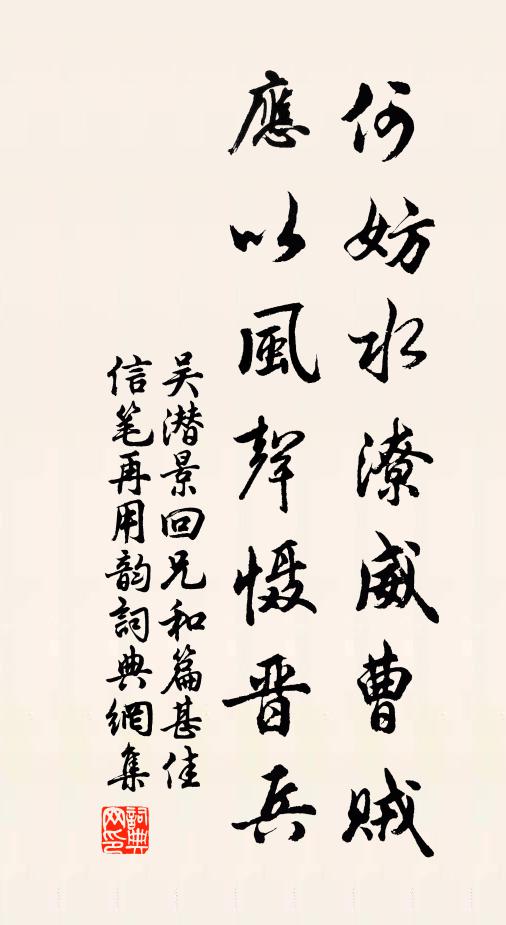 何妨水潦威曹贼
應以風聲慑晋兵
吴潜景回兄和篇甚佳
信笔再用韵詞典網集
詞典网印